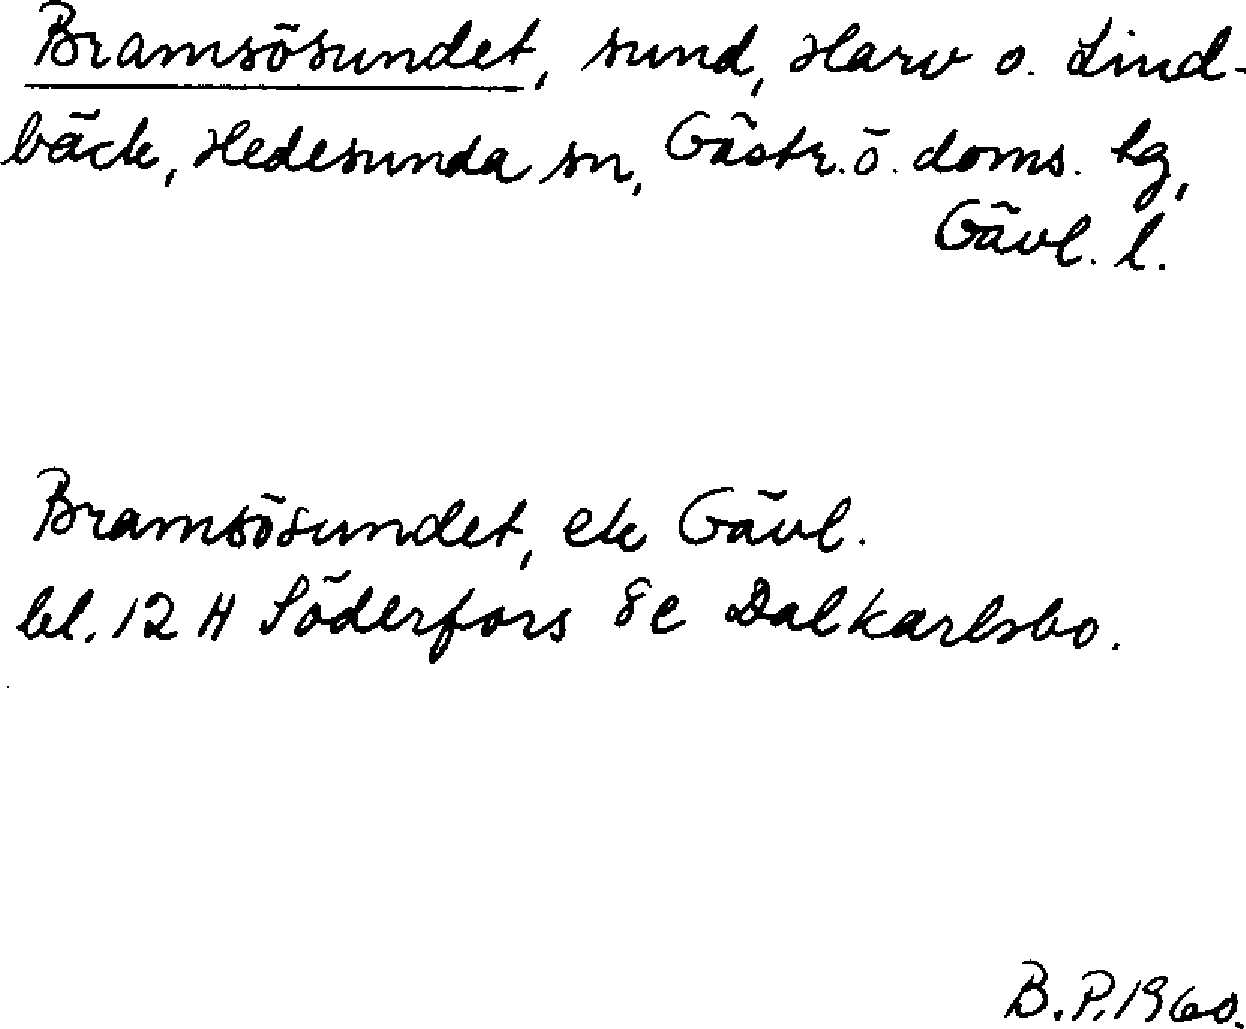 Bramsösundet, sund, Harv o. Lind-
bäck, Hedesunda sn, Gästr. ö. doms. tg,
Gävl. l.
Bramsösundet, ek Gävl.
bl. 12 H Söderfors 8e Dalkarlsbo.
B.P. 1960.